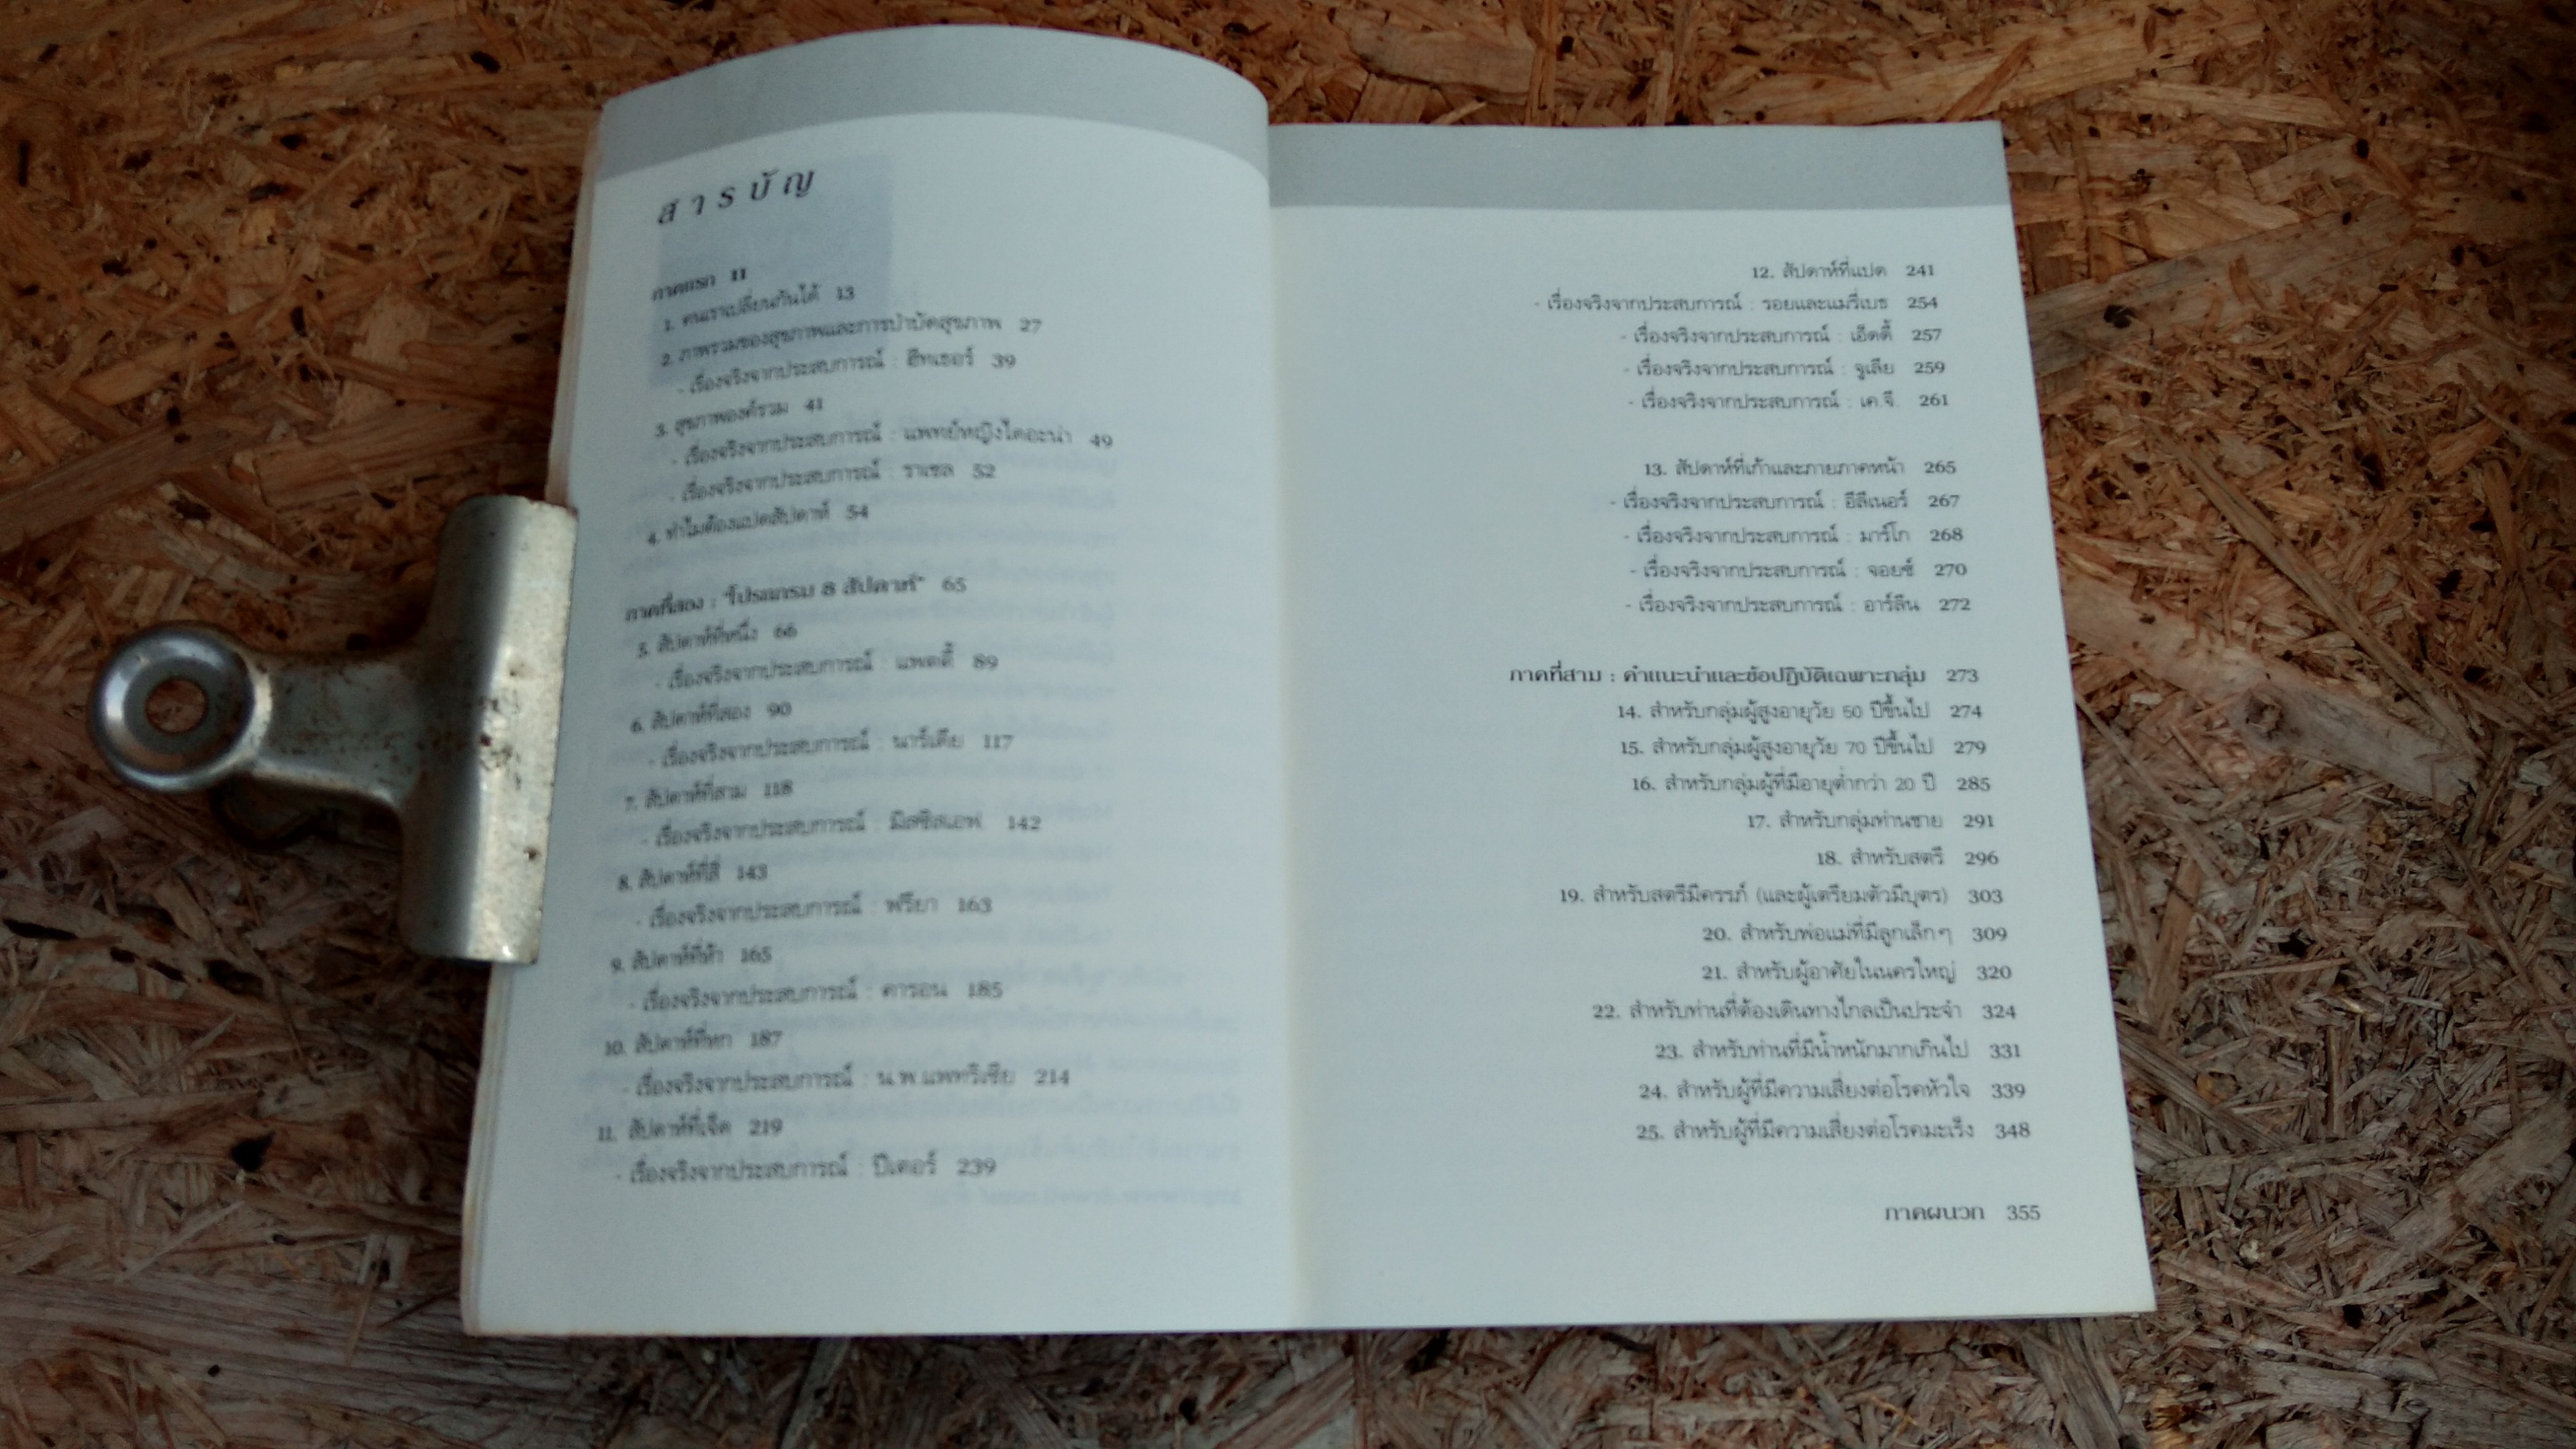 สารบัญ
ภาคแรก 11
1. คนเราเปลี่ยนกันได้ 13
2. ภาพรวมของสุขภาพและการบำบัดสุขภาพ 27
- เรื่องจริงจากประสบการณ์ : ฮีทเธอร์ 39
3. สุขภาพองค์รวม 41
- เรื่องจริงจากประสบการณ์ : แพทย์หญิงไดอะน่า 49
- เรื่องจริงจากประสบการณ์ : ราเชล 52
4. ทำไมต้องแปดสัปดาห์ 54
ภาคที่สอง : "โปรแกรม 8 สัปดาห์" 65
5. สัปดาห์ที่หนึ่ง 66
- เรื่องจริงจากประสบการณ์ : แพตตี้ 89
6. สัปดาห์ที่สอง 90
- เรื่องจริงจากประสบการณ์ : นาร์เดีย 117
7. สัปดาห์ที่สาม 118
- เรื่องจริงจากประสบการณ์ : มิสซิสเอฟ 142
8. สัปดาห์ที่สี่ 143
- เรื่องจริงจากประสบการณ์ : ฟรียา 163
9. สัปดาห์ที่ห้า 165
- เรื่องจริงจากประสบการณ์ : คารอน 185
10. สัปดาห์ที่หก 187
- เรื่องจริงจากประสบการณ์ : น.พ.แพทริเซีย 214
11. สัปดาห์ที่เจ็ด 219
- เรื่องจริงจากประสบการณ์ : ปีเตอร์ 239
12. สัปดาห์ที่แปด 241
- เรื่องจริงจากประสบการณ์ : รอยและแมรี่เบธ 254
- เรื่องจริงจากประสบการณ์ : เอ็ดดี้ 257
- เรื่องจริงจากประสบการณ์ : จูเลีย 259
- เรื่องจริงจากประสบการณ์ : เค.จี. 261
13. สัปดาห์ที่เก้าและภายภาคหน้า 265
- เรื่องจริงจากประสบการณ์ : อีลีเนอร์ 267
- เรื่องจริงจากประสบการณ์ : มาร์โก 268
- เรื่องจริงจากประสบการณ์ : จอยซ์ 270
- เรื่องจริงจากประสบการณ์ : อาร์ลีน 272
ภาคที่สาม : คำแนะนำและข้อปฏิบัติเฉพาะกลุ่ม 273
14. สำหรับกลุ่มผู้สูงอายุวัย 50 ปีขึ้นไป 274
15. สำหรับกลุ่มผู้สูงอายุวัย 70 ปีขึ้นไป 279
16. สำหรับกลุ่มผู้ที่มีอายุต่ำกว่า 20 ปี 285
17. สำหรับกลุ่มท่านชาย 291
18. สำหรับสตรี 296
19. สำหรับสตรีมีครรภ์ (และผู้เตรียมตัวมีบุตร) 303
20. สำหรับพ่อแม่ที่มีลูกเล็กๆ 309
21. สำหรับผู้อาศัยในนครใหญ่ 320
22. สำหรับท่านที่ต้องเดินทางไกลเป็นประจำ 324
23. สำหรับท่านที่มีน้ำหนักมากเกินไป 331
24. สำหรับผู้ที่มีความเสี่ยงต่อโรคหัวใจ 339
25. สำหรับผู้ที่มีความเสี่ยงต่อโรคมะเร็ง 348
ภาคผนวก 355